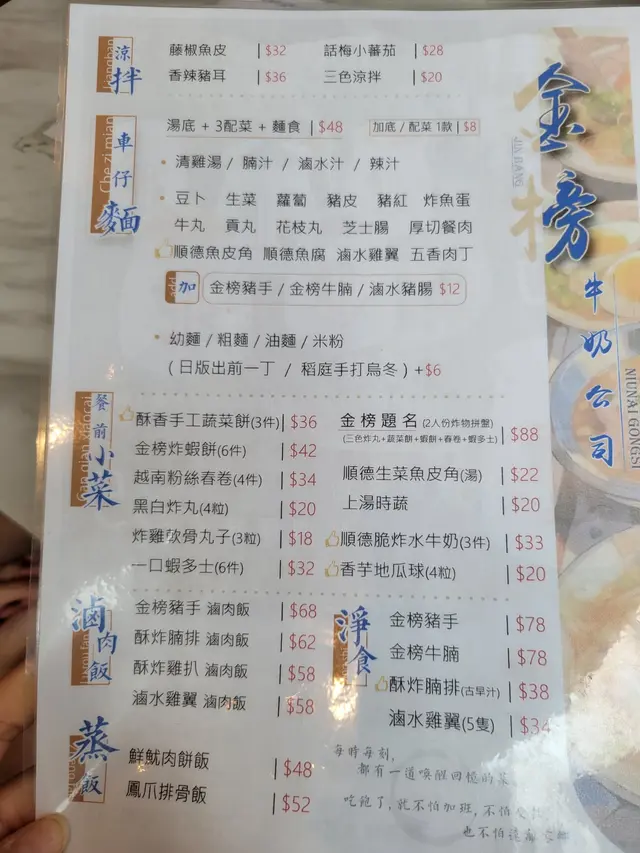 涼拌
liangban
藤椒魚皮 | $32 話梅小蕃茄 | $28
香辣豬耳 | $36 三色涼拌 | $20
車仔麵
Che zi mian
湯底 + 3配菜 + 麵食 | $48 加底 / 配菜 1款 | $8
• 清雞湯 / 腩汁 / 滷水汁 / 辣汁
• 豆卜 生菜 蘿蔔 豬皮 豬紅 炸魚蛋
牛丸 貢丸 花枝丸 芝士腸 厚切餐肉
順德魚皮角 順德魚腐 滷水雞翼 五香肉丁
加 金榜豬手 / 金榜牛腩 / 滷水豬腸 $12
• 幼麵 / 粗麵 / 油麵 / 米粉
( 日版出前一丁 / 稻庭手打烏冬 ) +$6
餐前小菜
Can qian xiaocai
酥香手工蔬菜餅(3件) | $36
金榜炸蝦餅(6件) | $42
越南粉絲春卷(4件) | $34
黑白炸丸(4粒) | $20
炸雞軟骨丸子(3粒) | $18
一口蝦多士(6件) | $32
金榜題名 (2人份炸物拼盤)
(三色炸丸+蔬菜餅+蝦餅+春卷+蝦多士) | $88
順德生菜魚皮角(湯) | $22
上湯時蔬 | $20
順德脆炸水牛奶(3件) | $33
香芋地瓜球(4粒) | $20
滷肉飯
金榜豬手 滷肉飯 | $68
酥炸腩排 滷肉飯 | $62
酥炸雞扒 滷肉飯 | $58
滷水雞翼 滷肉飯 | $58
淨食
金榜豬手 | $78
金榜牛腩 | $78
酥炸腩排(古早汁) | $38
滷水雞翼(5隻) | $34
蒸飯
鮮魷肉餅飯 | $48
鳳爪排骨飯 | $52
每時每刻,
都有一道喚醒回憶的菜
吃飽了,就不怕加班,不怕
也不怕
金榜
JIN BANG
牛奶公司
NIUNAI GONGSI